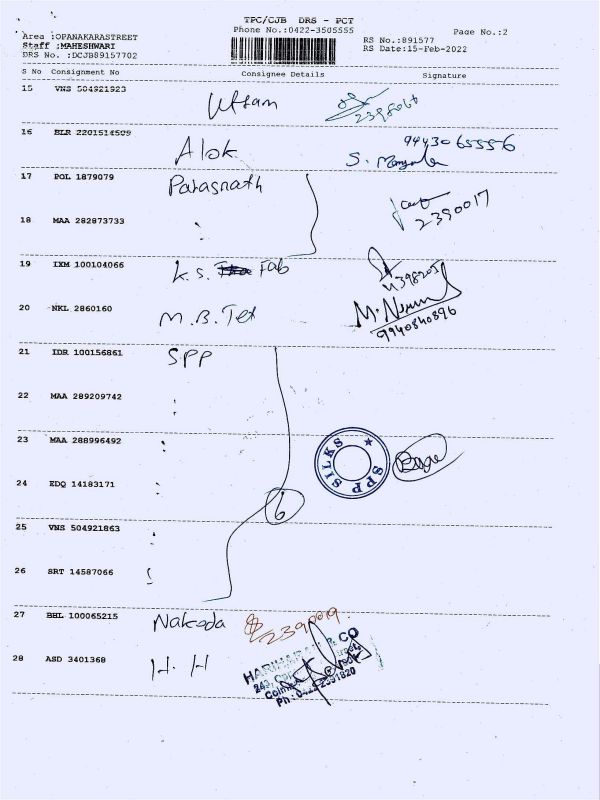 TPC/CJB DRS - PCT
Area :OPANAKARASTREET Phone No.:0422-3505555 Page No.:2
Staff :MAHESHWARI RS No.:891577
DRS No. :DCJB89157702 RS Date:15-Feb-2022
S No Consignment No Consignee Details Signature
15 VNS 504921923 Uttam 2398066
16 BLR 2201514509 Alok 9443065556
S.
17 POL 1879079 Parasnath
2390017
18 MAA 282873733 "
19 IXM 100104066 K.S. Fab
20 NKL 2860160 M.B. Tex M.
9940840896
21 IDR 100156861 SPP
22 MAA 289209742 "
23 MAA 288996492 "
SPP SILKS
24 EDQ 14183171 "
6
25 VNS 504921863 "
26 SRT 14587066 "
27 BHL 100065215 Nakoda 2390019
28 ASD 3401368 H. H
& CO